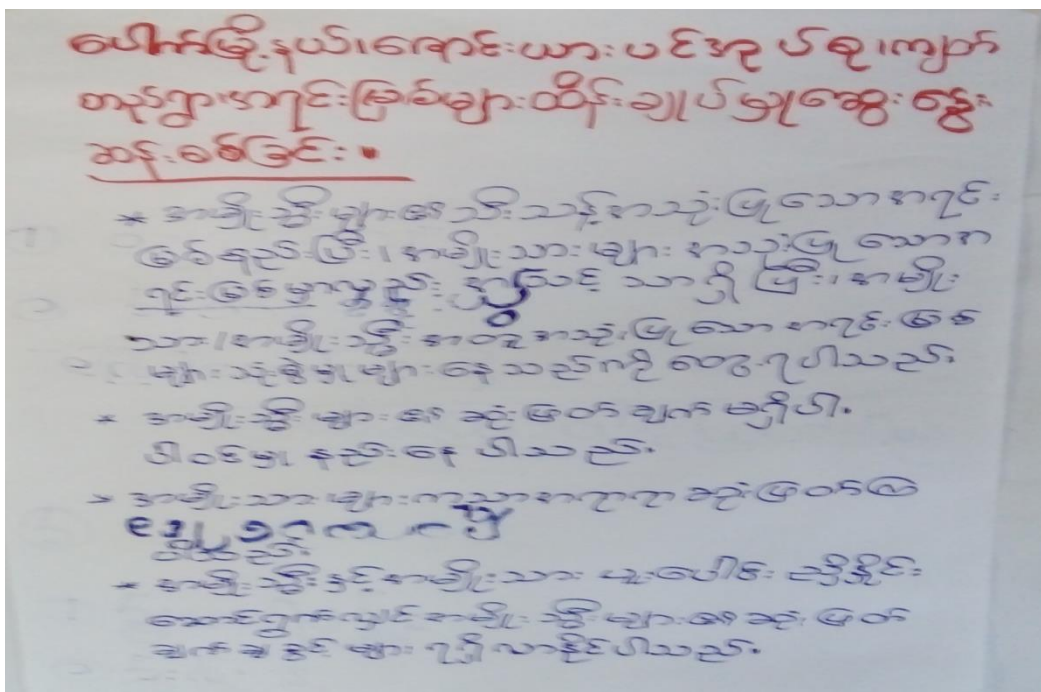 ပေါက်မြို့နယ်၊ ကြောင်းယားပင်အုပ်စု၊ ကျတ်
တည်ရွာ အရင်းမြစ်များထိန်းချုပ်မှု ဆွေးနွေး
ဆန်းစစ်ခြင်း။
* အမျိုးသ္မီးများ၏ သီးသန့်အသုံးပြုသော အရင်း
မြစ်နည်းပြီး၊ အမျိုးသားများ အသုံးပြုသော အ
ရင်းမြစ်မှာလည်း သင့် သာရှိပြီး၊ အမျိုး
သား/အမျိုးသ္မီး အတူအသုံးပြုသော အရင်းမြစ်
များသုံးစွဲမှုများနေသည်ကို တွေ့ရပါသည်။
* အမျိုးသ္မီးများ၏ ဆုံးဖြတ်ချက် မရှိပါ။
ပါဝင်မှု နည်းနေပါသည်။
* အမျိုးသားများကသာ ဆုံးဖြတ်ကြ
ပါသည်။
* အမျိုးသ္မီးနှင့် အမျိုးသား ပူးပေါင်း ညှိနှိုင်း
ဆောင်ရွက်လျှင် အမျိုးသ္မီးများ၏ ဆုံးဖြတ်
ချက်ချခွင့်များ ရရှိလာနိုင်ပါသည်။